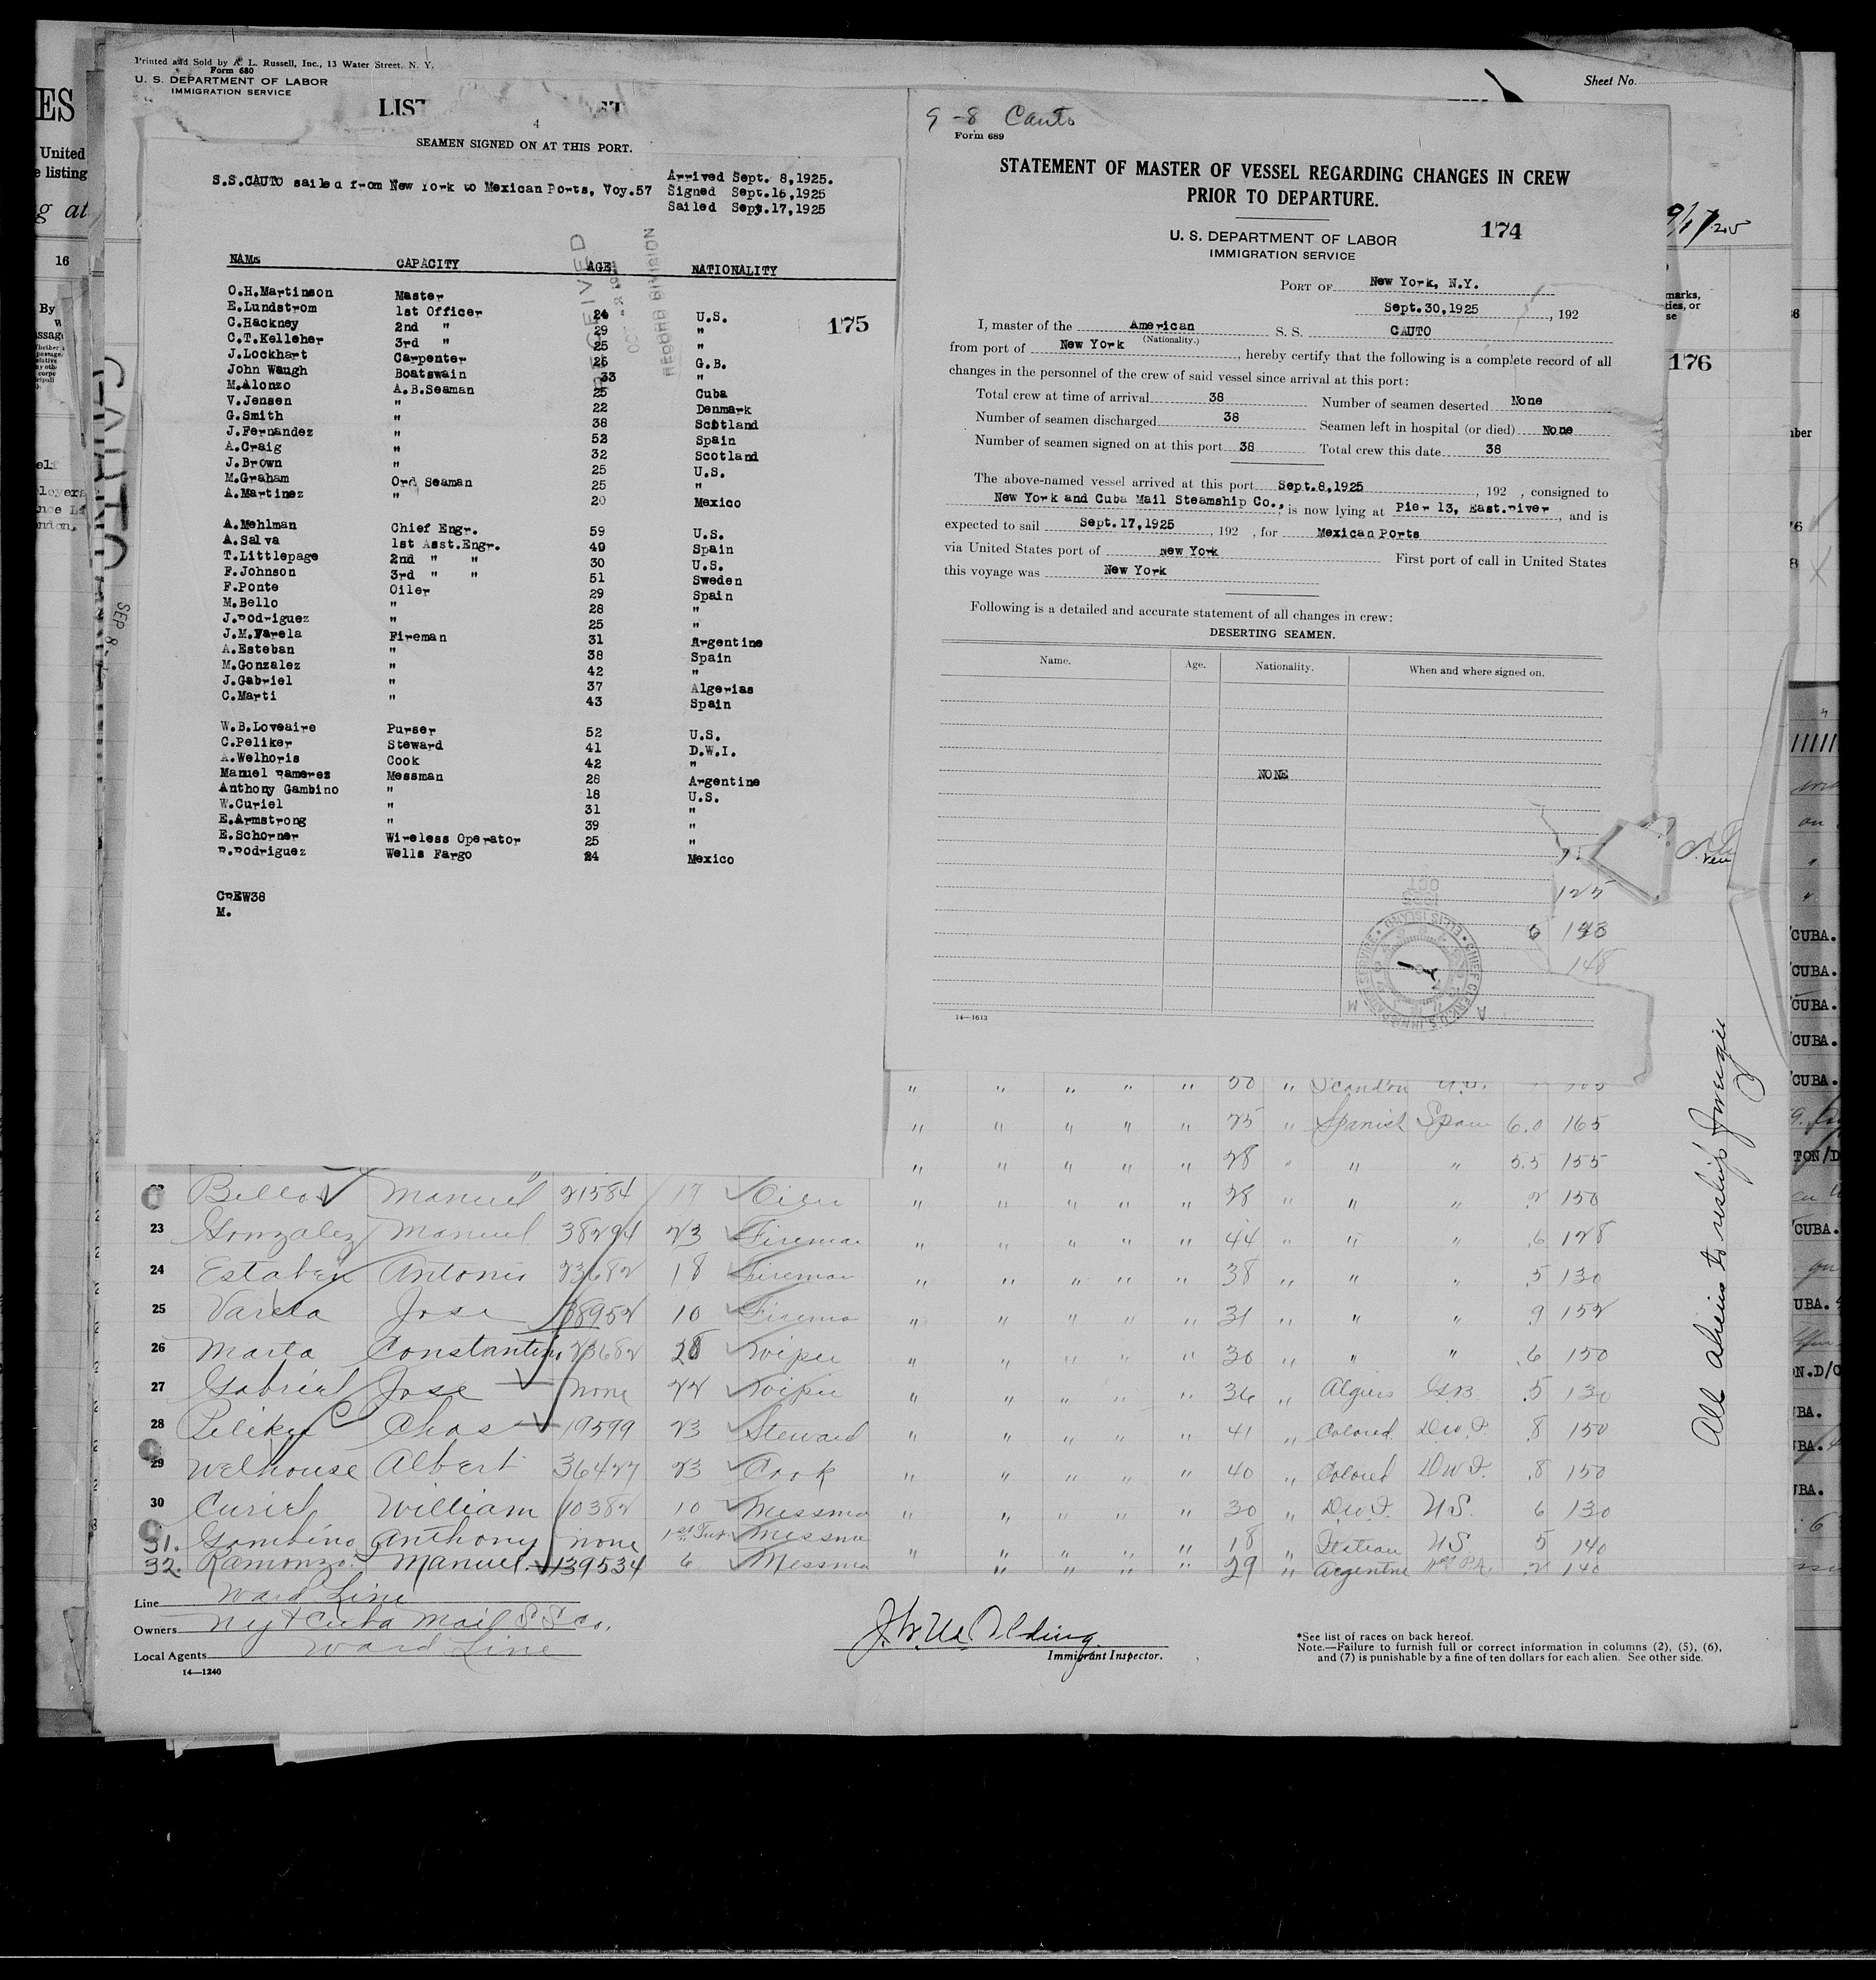 Printed and Sold by A. L. Russell, Inc., 13 Water Street, N. Y.
Form 680
U. S. DEPARTMENT OF LABOR
IMMIGRATION SERVICE
Sheet No.
4
SEAMEN SIGNED ON AT THIS PORT.
S.S.CAUTO sailed from New York to Mexican Ports, Voy.57
Arrived Sept. 8,1925.
Signed Sept.16,1925
Sailed Sept.17,1925
NAME CAPACITY AGE NATIONALITY
175
O.H.Martinson Master
E.Lundstrom 1st Officer 24 U.S.
C.Hackney 2nd " 29 "
C.T.Kelleher 3rd " 25 "
J.Lockhart Carpenter 26 G.B.
John Waugh Boatswain 33 "
M.Alonzo A.B.Seaman 25 Cuba
V.Jensen " 22 Denmark
G.Smith " 38 Scotland
J.Fernandez " 52 Spain
A.Craig " 32 Scotland
J.Brown " 25 U.S.
M.Graham Ord Seaman 25 "
A.Martinez " 20 Mexico
A.Mehlman Chief Engr. 59 U.S.
A.Salva 1st Asst.Engr. 49 Spain
T.Littlepage 2nd " " 30 U.S.
F.Johnson 3rd " " 51 Sweden
F.Ponte Oiler 29 Spain
M.Bello " 28 "
J.Rodriguez " 25 "
J.M.Varela Fireman 31 Argentine
A.Esteban " 38 Spain
M.Gonzalez " 42 "
J.Gabriel " 37 Algerias
C.Marti " 43 Spain
W.B.Loveaire Purser 52 U.S.
C.Peliker Steward 41 D.W.I.
A.Welhoris Cook 42 "
Manuel Ramerez Messman 28 Argentine
Anthony Gambino " 18 U.S.
W.Curiel " 31 "
E.Armstrong " 39 "
E.Schorner Wireless Operator 25 "
R.Rodriguez Wells Fargo 24 Mexico
CREW38
M.
9-8 Cauto
Form 689
STATEMENT OF MASTER OF VESSEL REGARDING CHANGES IN CREW
PRIOR TO DEPARTURE.
174
U. S. DEPARTMENT OF LABOR
IMMIGRATION SERVICE
PORT OF New York, N.Y.
Sept.30,1925, 192
I, master of the American S. S. CAUTO
(Nationality.)
from port of New York, hereby certify that the following is a complete record of all
changes in the personnel of the crew of said vessel since arrival at this port:
Total crew at time of arrival 38 Number of seamen deserted None
Number of seamen discharged 38 Seamen left in hospital (or died) None
Number of seamen signed on at this port 38 Total crew this date 38
The above-named vessel arrived at this port Sept.8,1925, 192 , consigned to
New York and Cuba Mail Steamship Co., is now lying at Pier 13, East.River, and is
expected to sail Sept.17,1925, 192 , for Mexican Ports
via United States port of New York First port of call in United States
this voyage was New York
Following is a detailed and accurate statement of all changes in crew:
DESERTING SEAMEN.
Name. Age. Nationality. When and where signed on.
NONE
14—1613
176
" " " " " 25 " Spanish Spain 6.0 165
" " " " " 28 " " " 5.5 155
Bello Manuel 21584 17 Oiler " " " " " 28 " " " 2 150
23 Gonzalez Manuel 38294 23 Fireman " " " " " 44 " " " 6 128
24 Estaben Antonio 23682 18 Fireman " " " " " 38 " " " 5 130
25 Varela Jose 38952 10 Fireman " " " " " 31 " " " 9 152
26 Marta Constantino 23682 28 Wiper " " " " " 30 " " " 6 150
27 Gabriel Jose None 22 Wiper " " " " " 36 " Algiers G.B. 5 130
28 Peliker Chas 19599 23 Steward " " " " " 41 " Colored D.W.I. 8 150
29 Welhouse Albert 36427 23 Cook " " " " " 40 " Colored D.W.I. 8 150
30 Curiel William 10382 10 Messman " " " " " 30 " D.W.I. U.S. 6 130
31. Gambino Anthony none 1st Trip Messman " " " " " 18 " Italian U.S. 5 140
32. Ramonzo Manuel 139534 6 Messman " " " " 29 " Argentine 2 140
All aliens to reship foreign
Line Ward Line
Owners N.Y. & Cuba Mail S S Co.
Local Agents Ward Line
14—1240
Immigrant Inspector.
*See list of races on back hereof.
Note.—Failure to furnish full or correct information in columns (2), (5), (6),
and (7) is punishable by a fine of ten dollars for each alien. See other side.